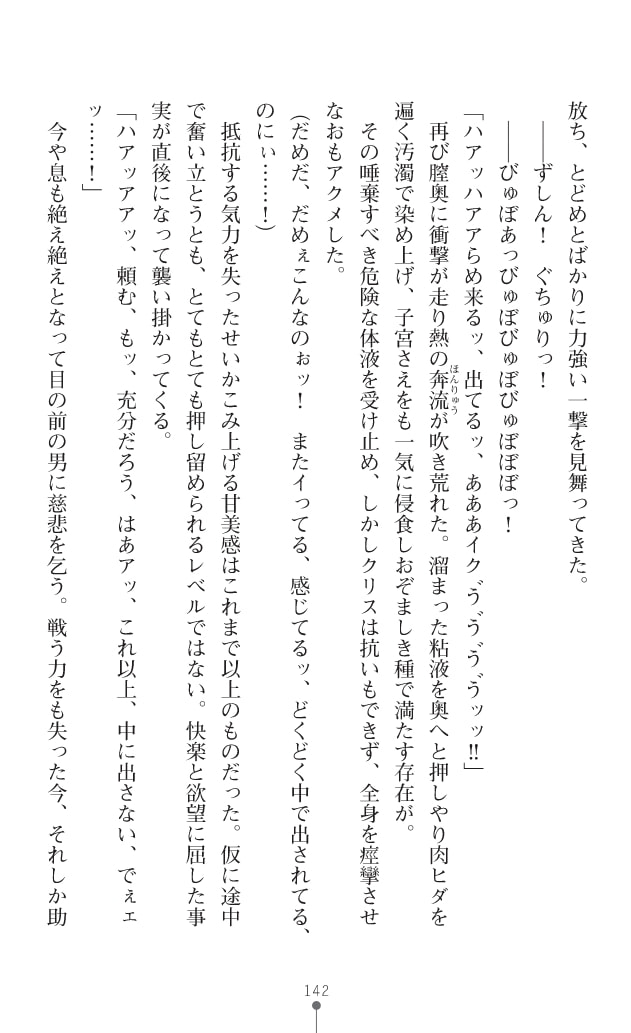 放ち、とどめとばかりに力強い一撃を見舞ってきた。
――ずしん！　ぐちゅりっ！
――びゅぼあっびゅぼびゅぼびゅぼぼぼっ！
「ハアッハアアらめ来るッ、出てるッ、あああイクﾞうﾞうﾞうﾞうッッ‼」
再び膣奥に衝撃が走り熱の奔流が吹き荒れた。溜まった粘液を奥へと押しやり肉ヒダを
ほんりゅう
遍く汚濁で染め上げ、子宮さえをも一気に侵食しおぞましき種で満たす存在が。
その唾棄すべき危険な体液を受け止め、しかしクリスは抗いもできず、全身を痙攣させ
なおもアクメした。
（だめだ、だめぇこんなのぉッ！　またイってる、感じてるッ、どくどく中で出されてる、
のにぃ……！）
抵抗する気力を失ったせいかこみ上げる甘美感はこれまで以上のものだった。仮に途中
で奮い立とうとも、とてもとても押し留められるレベルではない。快楽と欲望に屈した事
実が直後になって襲い掛かってくる。
「ハアッアアッ、頼む、もッ、充分だろう、はあアッ、これ以上、中に出さない、でぇェ
ッ……！」
今や息も絶え絶えとなって目の前の男に慈悲を乞う。戦う力をも失った今、それしか助
142